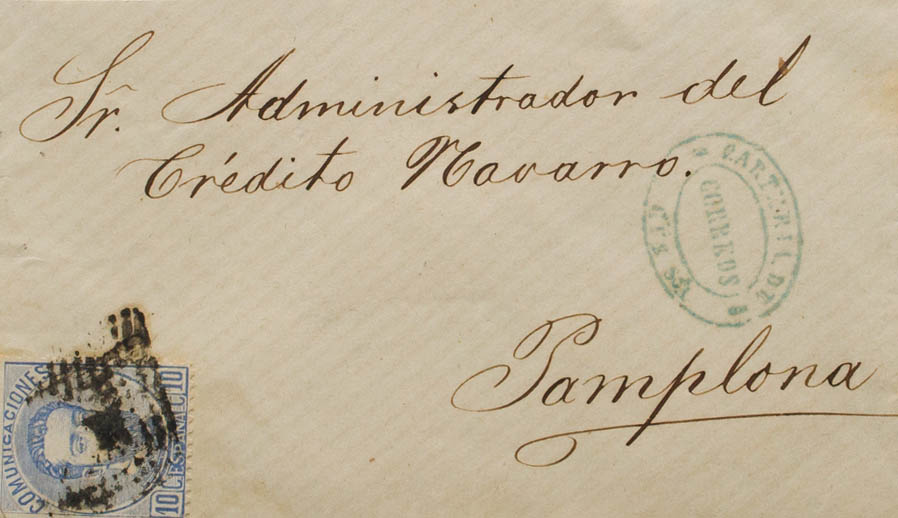 Sr. Administrador del
Crédito Navarro.
CARTERIA DE
CORREOS
Pamplona
COMUNICACIONES
10 CS. 10